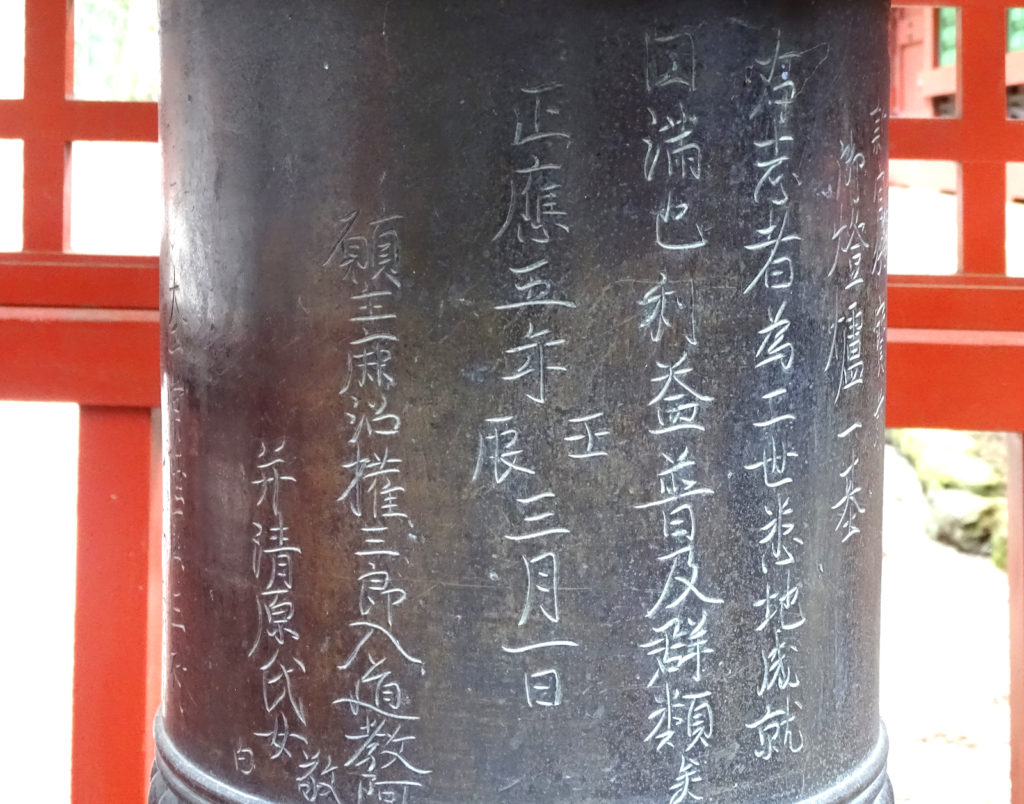 御燈爐一基
右志者為二世悉地成就
満也利益普及群類矣
正應五年壬辰三月一日
願主鹿沼權三郎入道教阿
并清原氏女
敬白